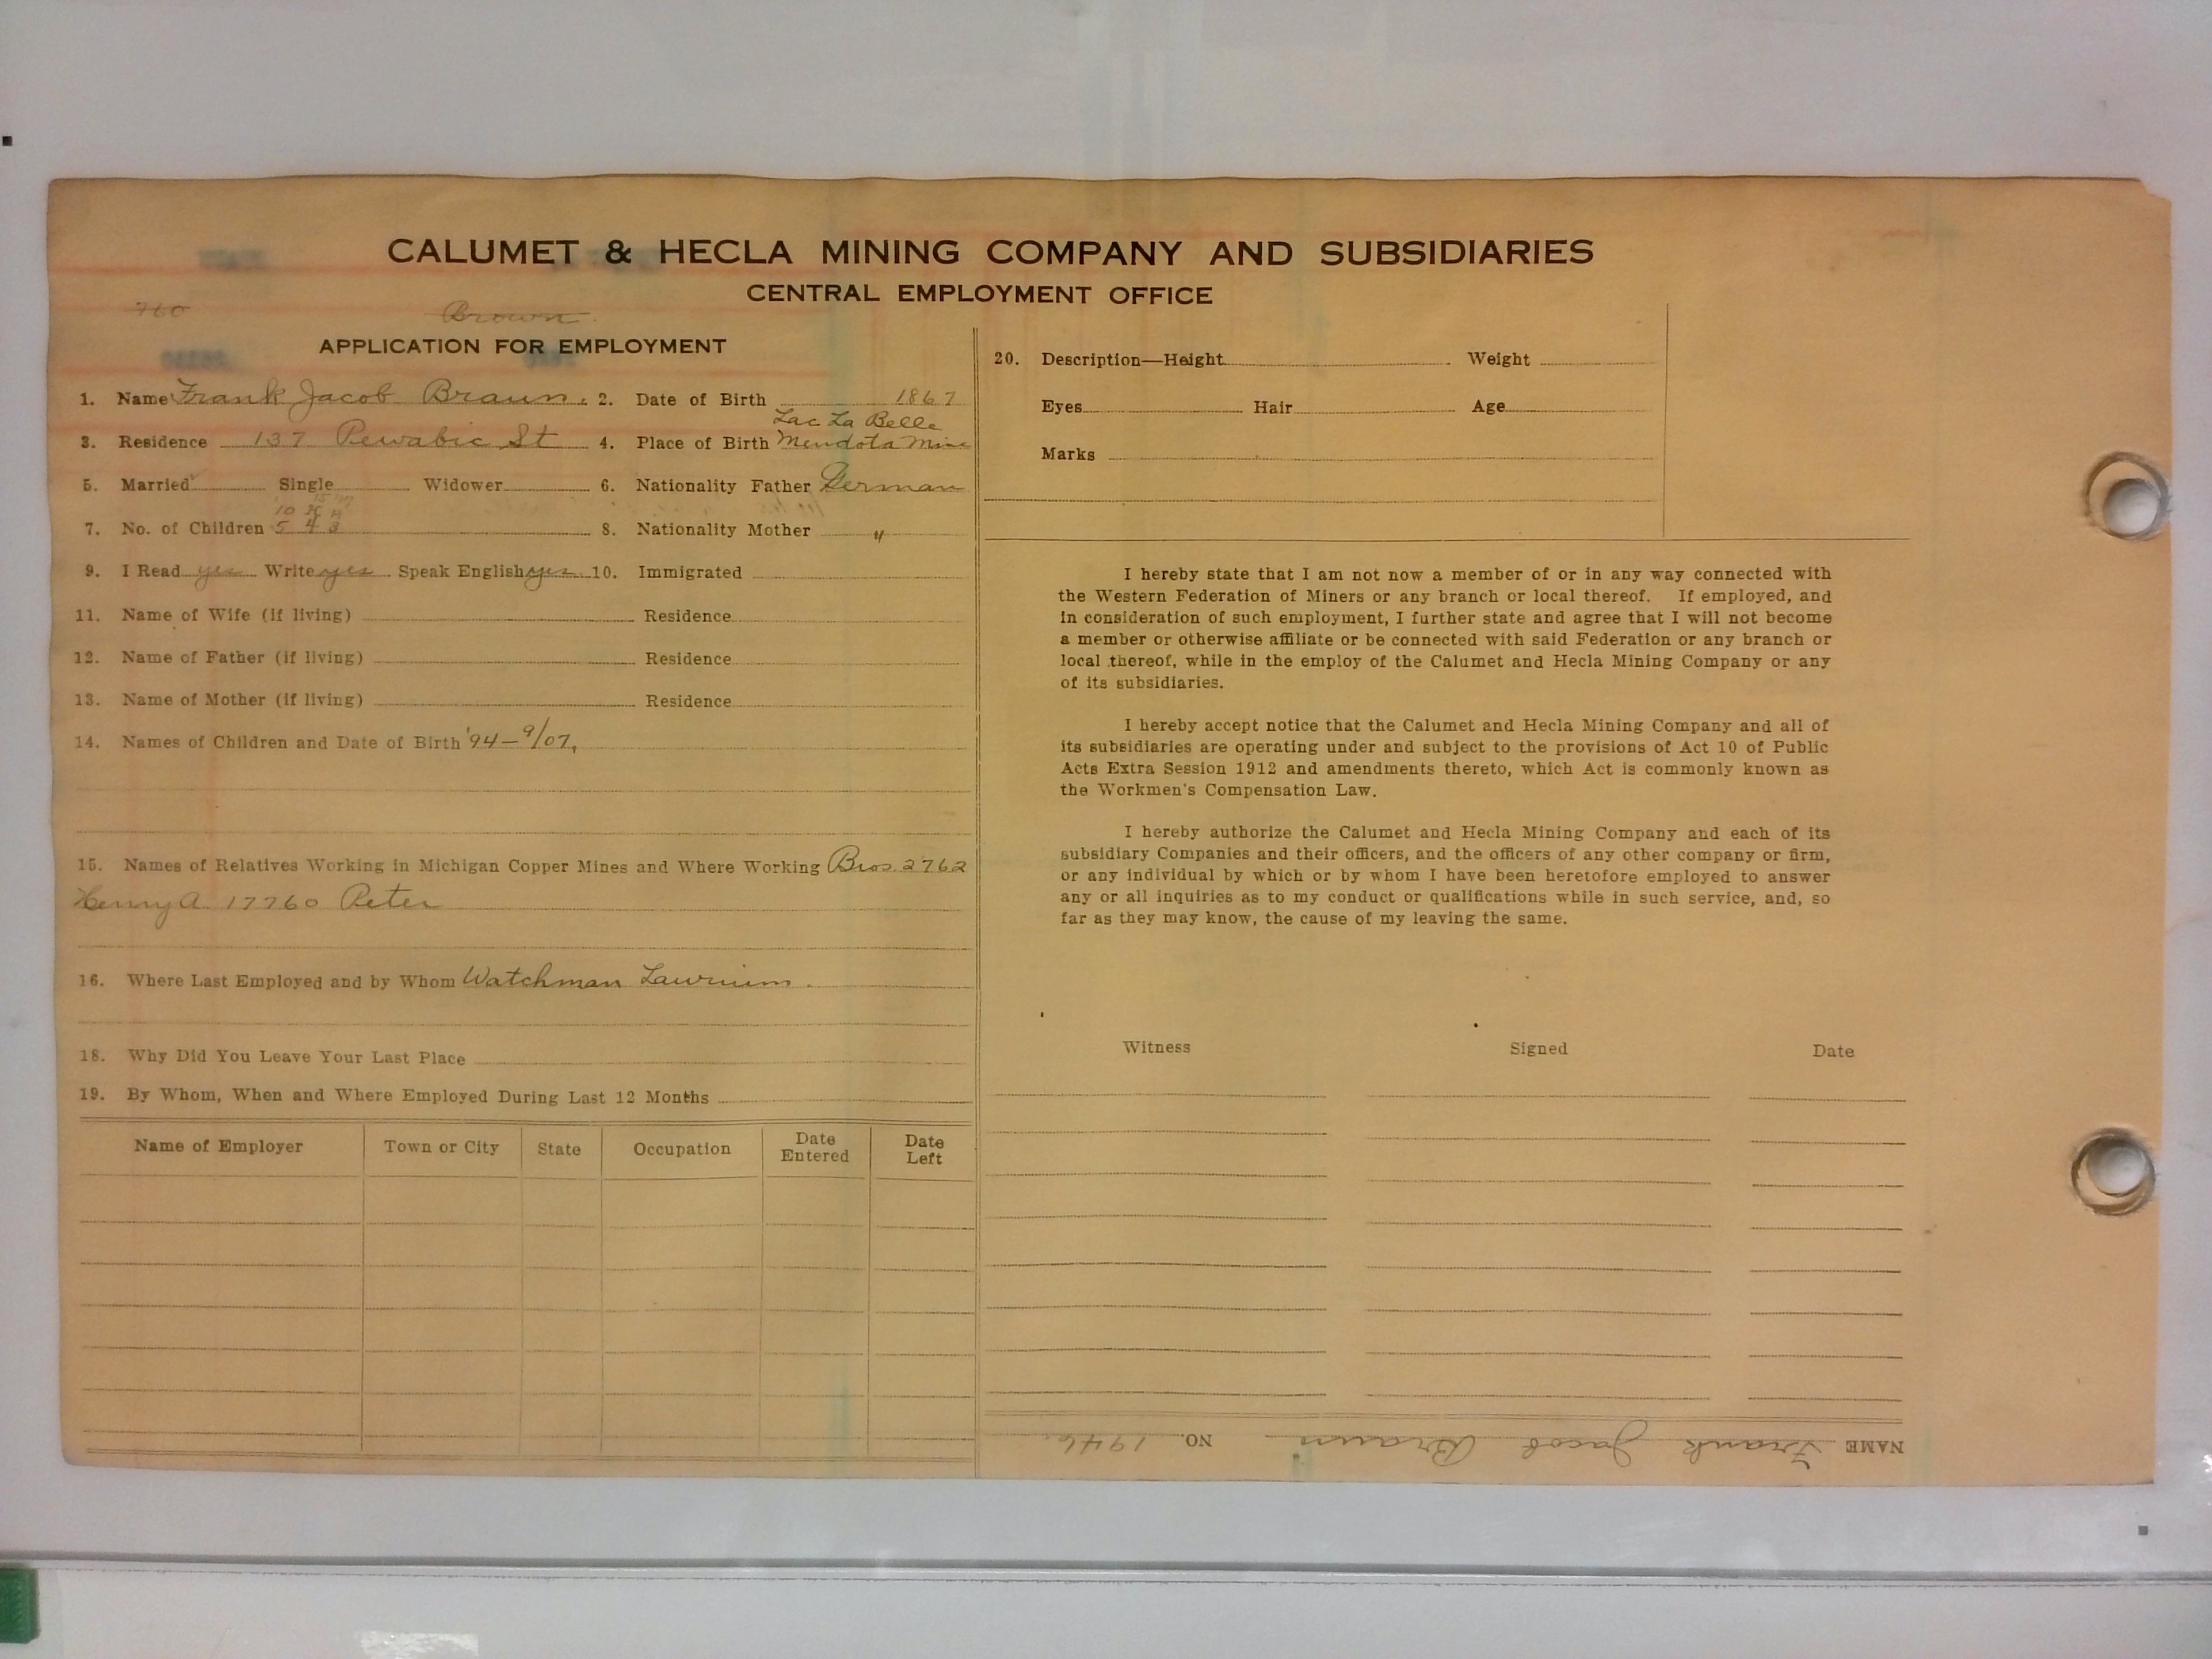 CALUMET & HECLA MINING COMPANY AND SUBSIDIARIES
CENTRAL EMPLOYMENT OFFICE
Brown
APPLICATION FOR EMPLOYMENT
1. Name Frank Jacob Braun. 2. Date of Birth 1867
Lac La Belle
3. Residence 137 Pewabic St 4. Place of Birth Mendota Mine
5. Married Single Widower 6. Nationality Father German
7. No. of Children 5 4 3 8. Nationality Mother "
9. I Read yes Write yes Speak English yes 10. Immigrated
11. Name of Wife (if living) Residence
12. Name of Father (if living) Residence
13. Name of Mother (if living) Residence
14. Names of Children and Date of Birth '94 - 9/07,
15. Names of Relatives Working in Michigan Copper Mines and Where Working Bros. 2762
Henry A. 17760 Peter
16. Where Last Employed and by Whom Watchman Laurium.
18. Why Did You Leave Your Last Place
19. By Whom, When and Where Employed During Last 12 Months
Name of Employer Town or City State Occupation Date Entered Date Left
20. Description—Height Weight
Eyes Hair Age
Marks
I hereby state that I am not now a member of or in any way connected with
the Western Federation of Miners or any branch or local thereof. If employed, and
in consideration of such employment, I further state and agree that I will not become
a member or otherwise affiliate or be connected with said Federation or any branch or
local thereof, while in the employ of the Calumet and Hecla Mining Company or any
of its subsidiaries.
I hereby accept notice that the Calumet and Hecla Mining Company and all of
its subsidiaries are operating under and subject to the provisions of Act 10 of Public
Acts Extra Session 1912 and amendments thereto, which Act is commonly known as
the Workmen's Compensation Law.
I hereby authorize the Calumet and Hecla Mining Company and each of its
subsidiary Companies and their officers, and the officers of any other company or firm,
or any individual by which or by whom I have been heretofore employed to answer
any or all inquiries as to my conduct or qualifications while in such service, and, so
far as they may know, the cause of my leaving the same.
Witness Signed Date
NAME Frank Jacob Braun NO. 1946